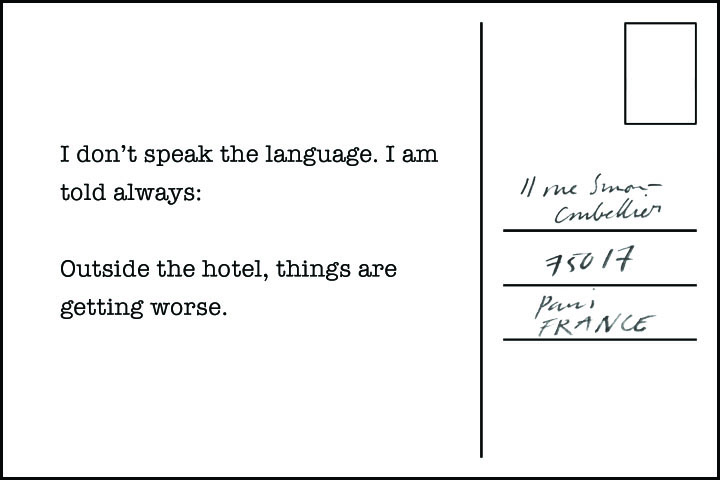 I don’t speak the language. I am
told always:
Outside the hotel, things are
getting worse.
11 rue Simon-
75017
Paris
FRANCE